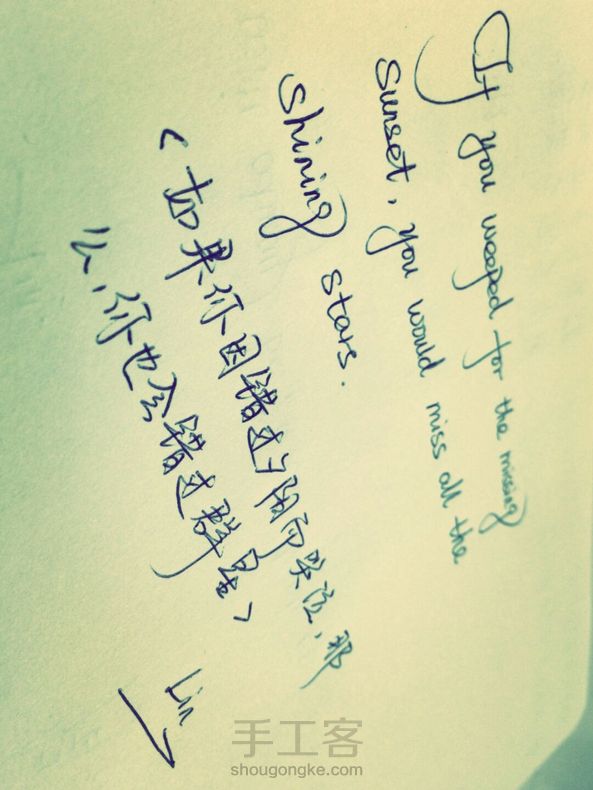 If you weeped for the missing
sunset, you would miss all the
shining stars.
<如果你因错过夕阳而哭泣,那
么,你也会错过群星>
Lin
手工客
shougongke.com